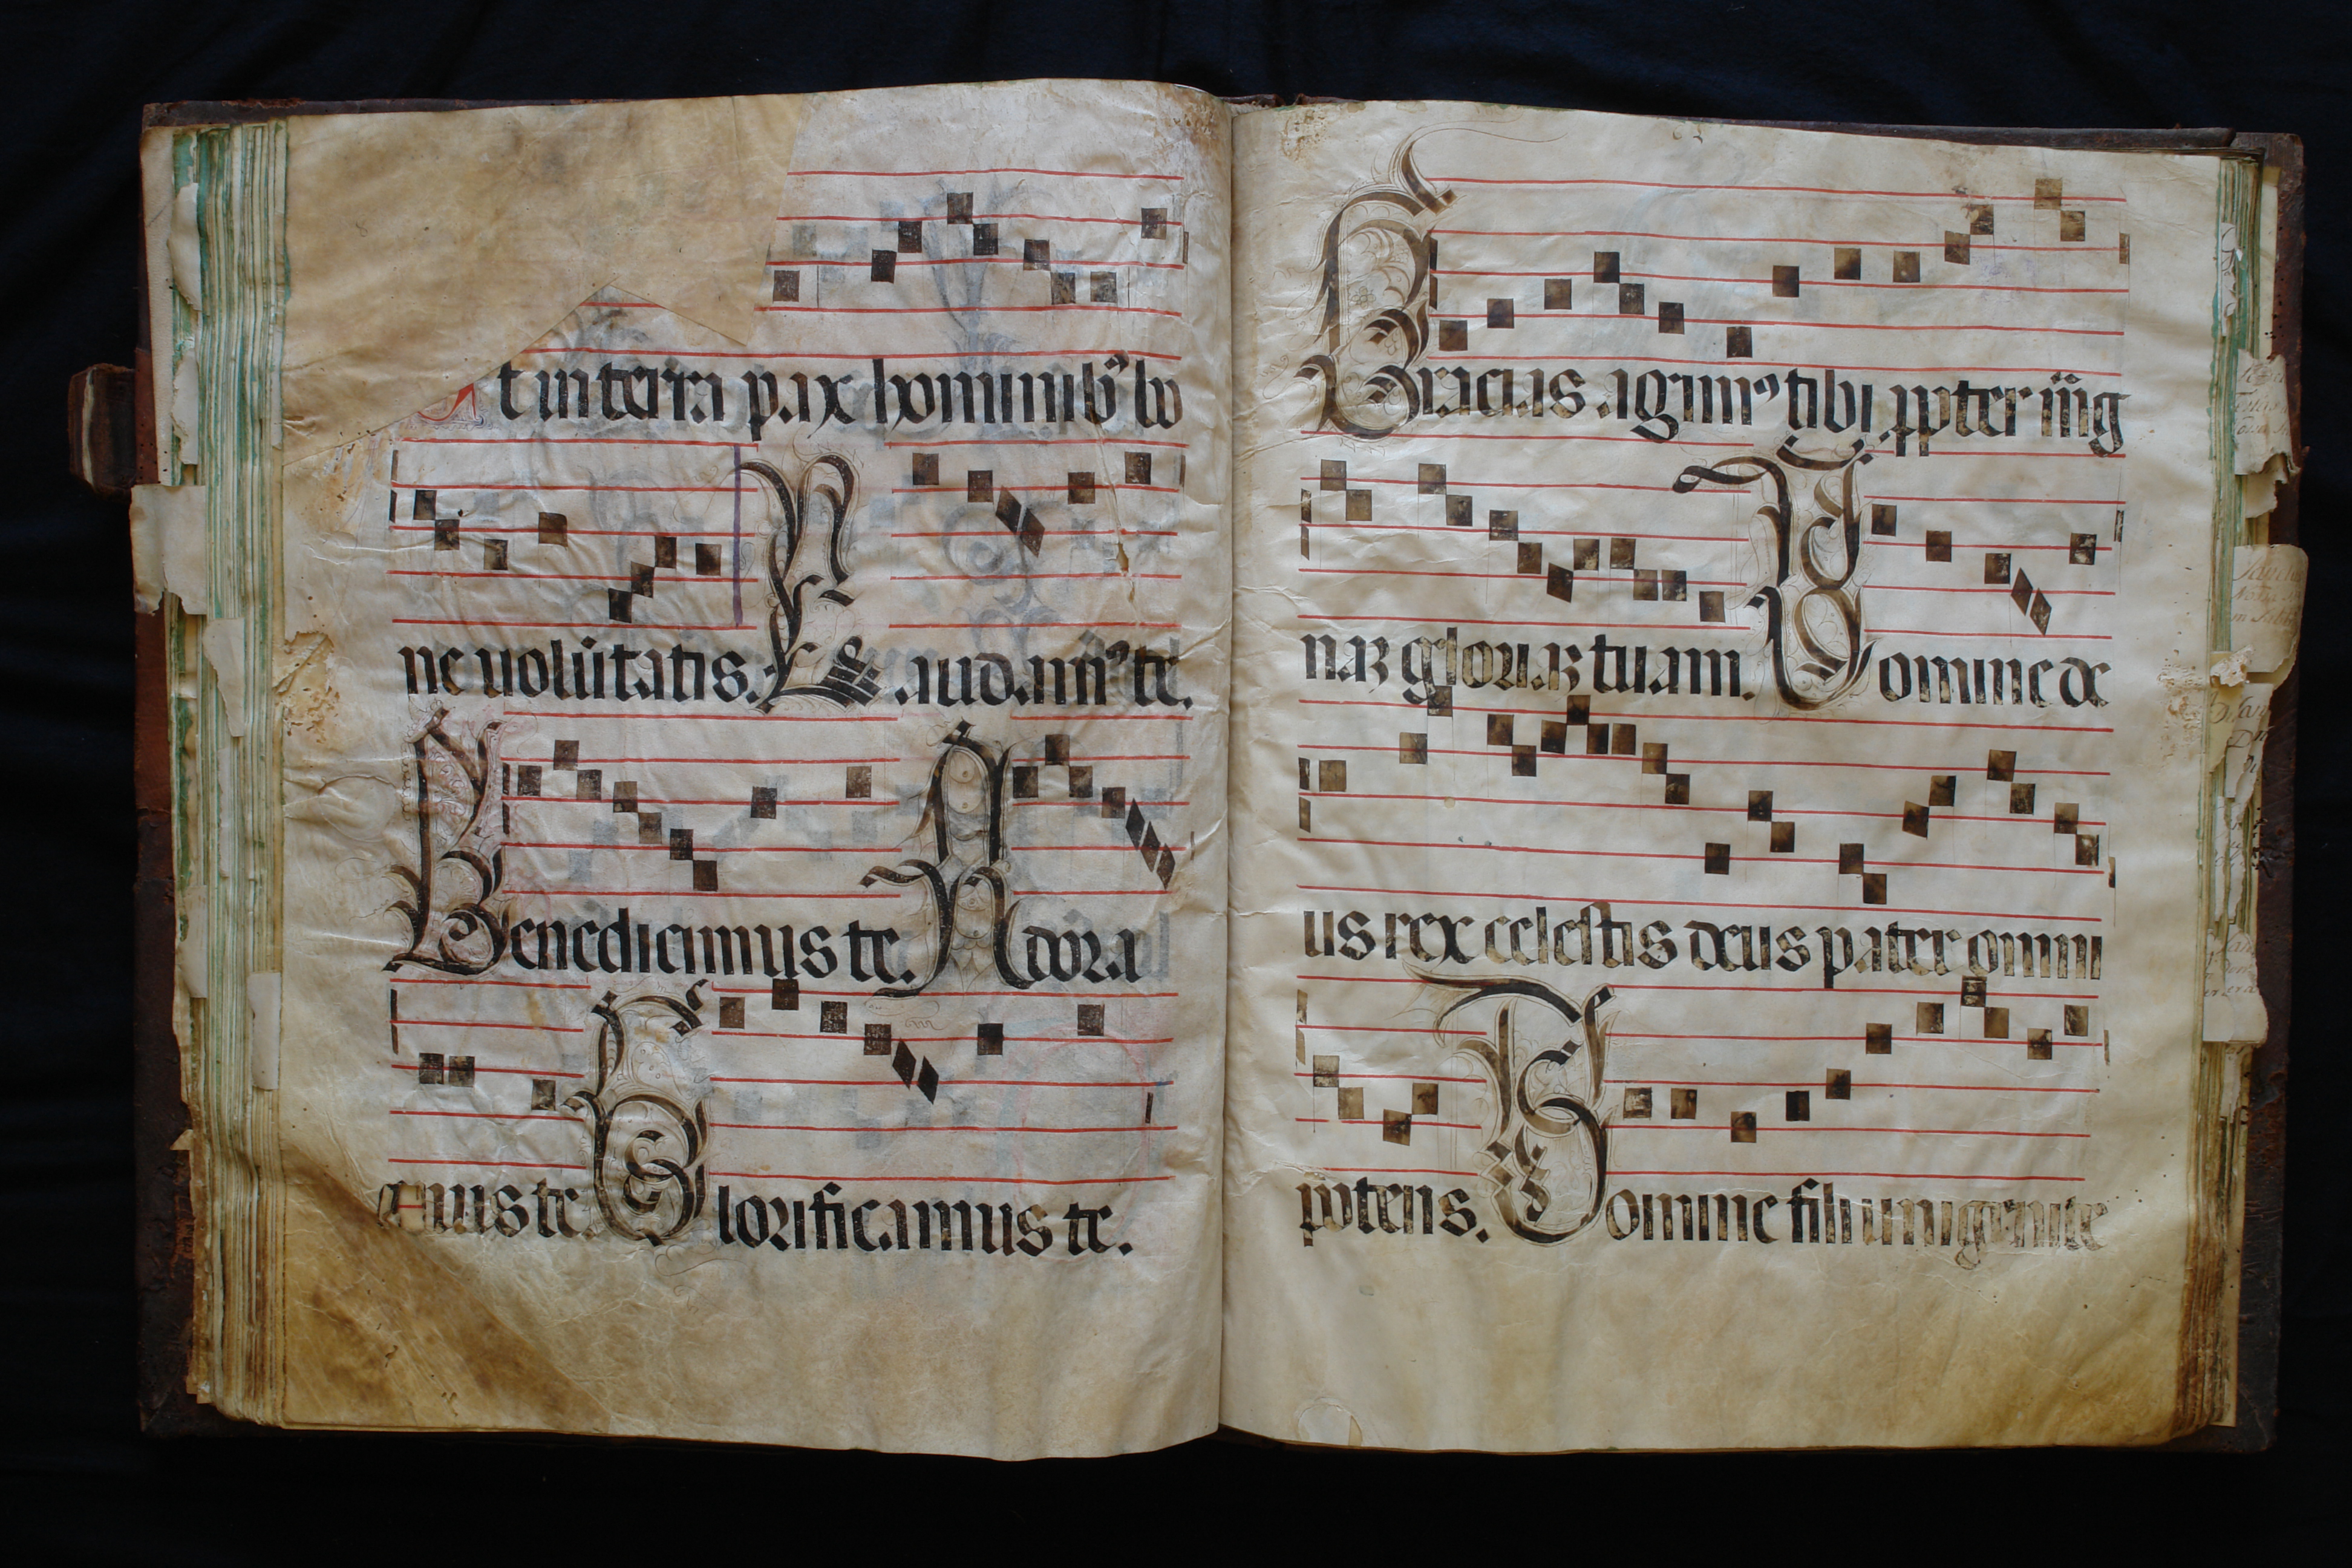 Et in terra pax hominibꝰ bo
ne uolūtatis. Laudamꝰ te.
Benedicimus te. Adora
mus te. Glorificamus te.
Gracias agimꝰ tibi ꝓpter
naꝫ gloriaꝫ tuam. Domine de
us rex celestis deus pater omni
potens. Domine fili unigenite